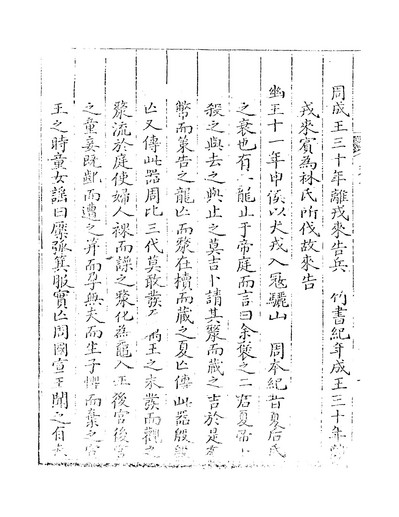 周成王三十年離戎來告兵　竹書紀年成王三十年離
戎來賓為林氏所伐故來告
幽王十一年申侯以犬戎入寇驪山　周本紀昔夏后氏
之衰也有二龍止于帝庭而言曰余褒之二君夏帝卜
殺之與去之與止之莫吉卜請其漦而藏之吉於是布
幣而策告之龍亡而漦在櫝而藏之夏亡傳此器殷殷
亡又傳此器周比三代莫敢發之 厲王之末發而觀之
漦流於庭使婦人裸而譟之漦化為黿入王後宮後宮
之童妾既齔而遭之笄而孕無夫而生子懼而棄之宣
王之時童女謠曰檿弧箕服實亡周國宣王聞之有夫